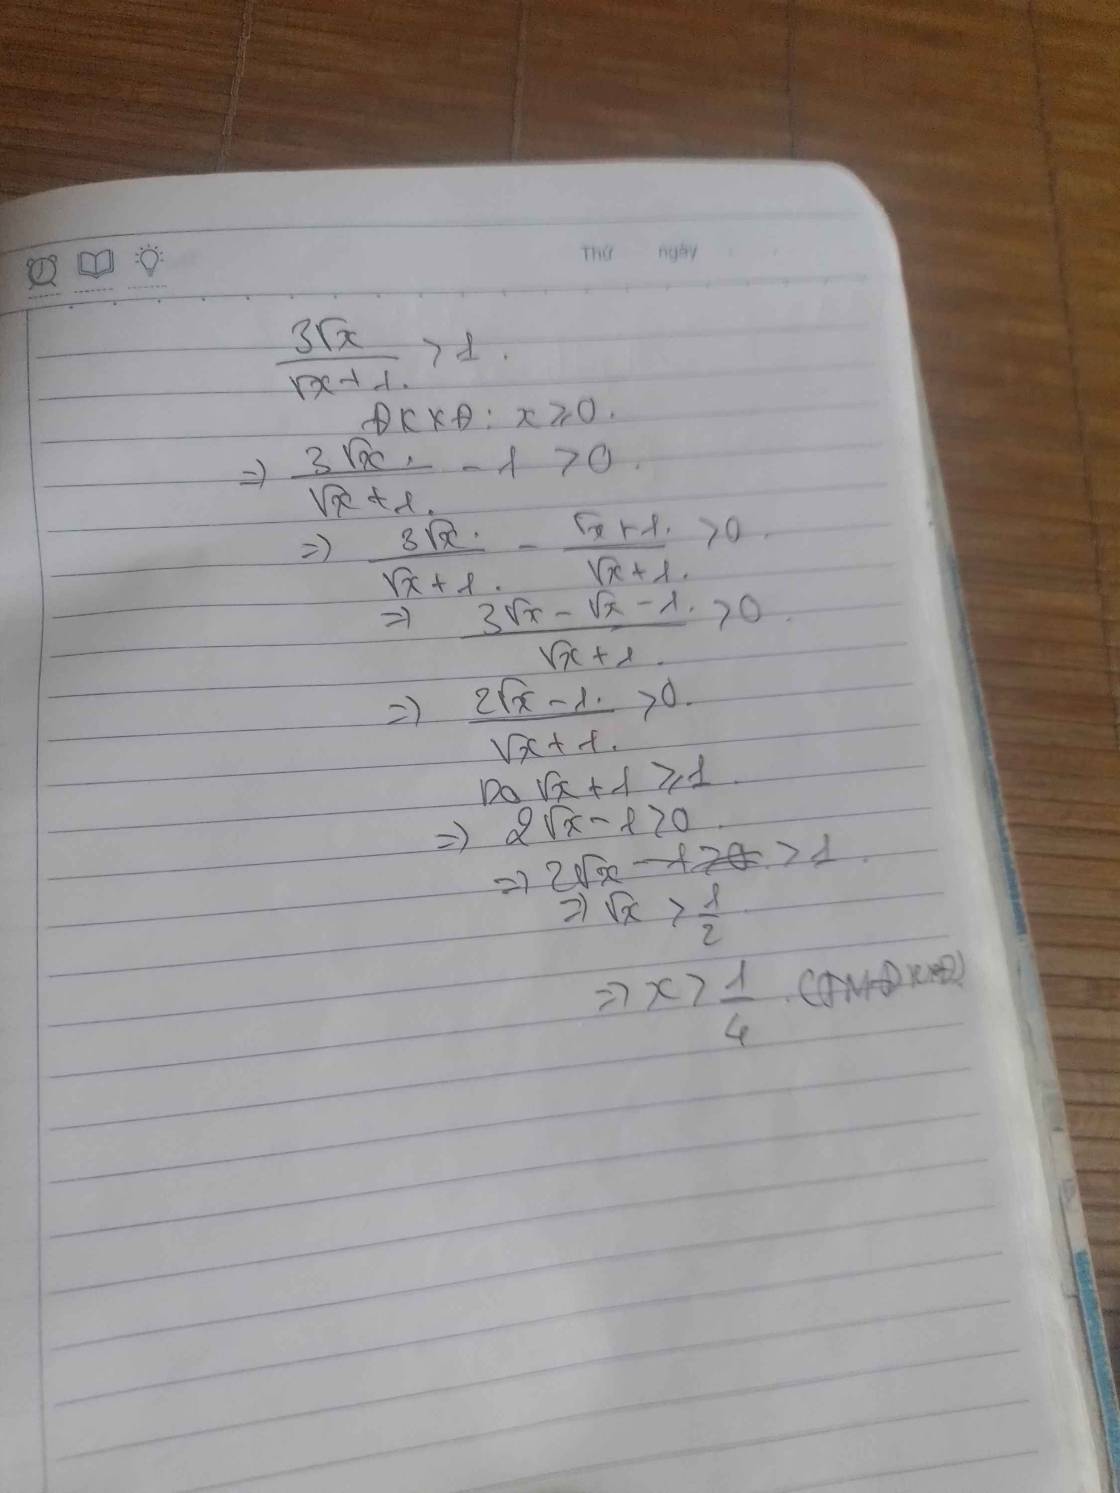 Thứ ngày
3√x / (√x + 1) > 1.
ĐKXĐ: x ≥ 0.
=> 3√x / (√x + 1) - 1 > 0.
=> 3√x / (√x + 1) - (√x + 1) / (√x + 1) > 0.
=> (3√x - √x - 1) / (√x + 1) > 0.
=> (2√x - 1) / (√x + 1) > 0.
Do √x + 1 ≥ 1.
=> 2√x - 1 > 0.
=> 2√x > 1.
=> √x > 1/2
=> x > 1/4 . (TMĐKXĐ)